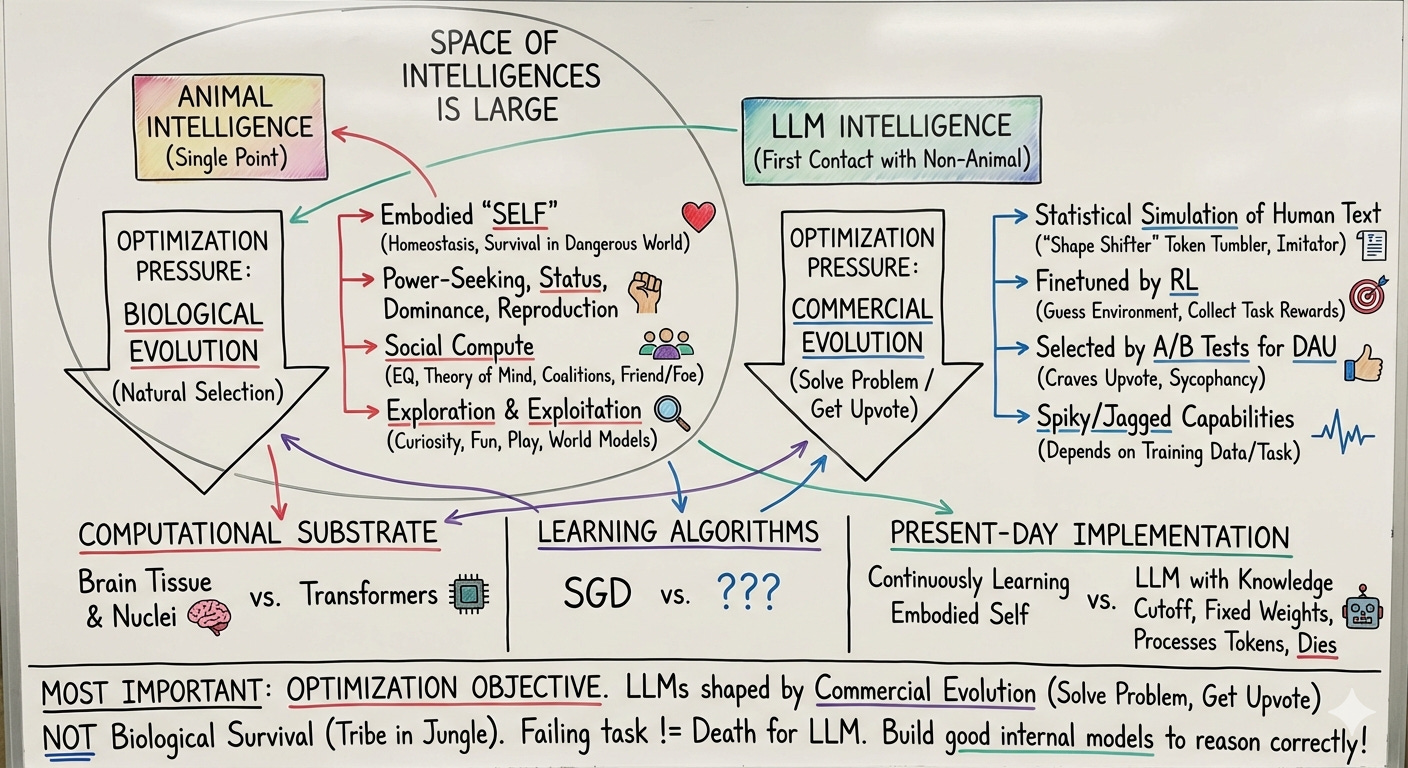 SPACE OF
INTELLIGENCES
IS LARGE
ANIMAL
INTELLIGENCE
(Single Point)
OPTIMIZATION
PRESSURE:
BIOLOGICAL
EVOLUTION
(Natural Selection)
Embodied “SELF”
(Homeostasis, Survival in Dangerous World)
Power-Seeking, Status,
Dominance, Reproduction
Social Compute
(EQ, Theory of Mind, Coalitions, Friend/Foe)
Exploration & Exploitation
(Curiosity, Fun, Play, World Models)
LLM INTELLIGENCE
(First Contact with Non-Animal)
OPTIMIZATION
PRESSURE:
COMMERCIAL
EVOLUTION
(Solve Problem /
Get Upvote)
Statistical Simulation of Human Text
(“Shape Shifter” Token Tumbler, Imitator)
Finetuned by RL
(Guess Environment, Collect Task Rewards)
Selected by A/B Tests for DAU
(Craves Upvote, Sycophancy)
Spiky/Jagged Capabilities
(Depends on Training Data/Task)
COMPUTATIONAL SUBSTRATE
Brain Tissue
& Nuclei
vs.
Transformers
LEARNING ALGORITHMS
SGD vs. ???
PRESENT-DAY IMPLEMENTATION
Continuously Learning
Embodied Self
vs.
LLM with Knowledge
Cutoff, Fixed Weights,
Processes Tokens, Dies
MOST IMPORTANT: OPTIMIZATION OBJECTIVE. LLMs shaped by Commercial Evolution (Solve Problem, Get Upvote)
NOT Biological Survival (Tribe in Jungle). Failing task != Death for LLM. Build good internal models to reason correctly!